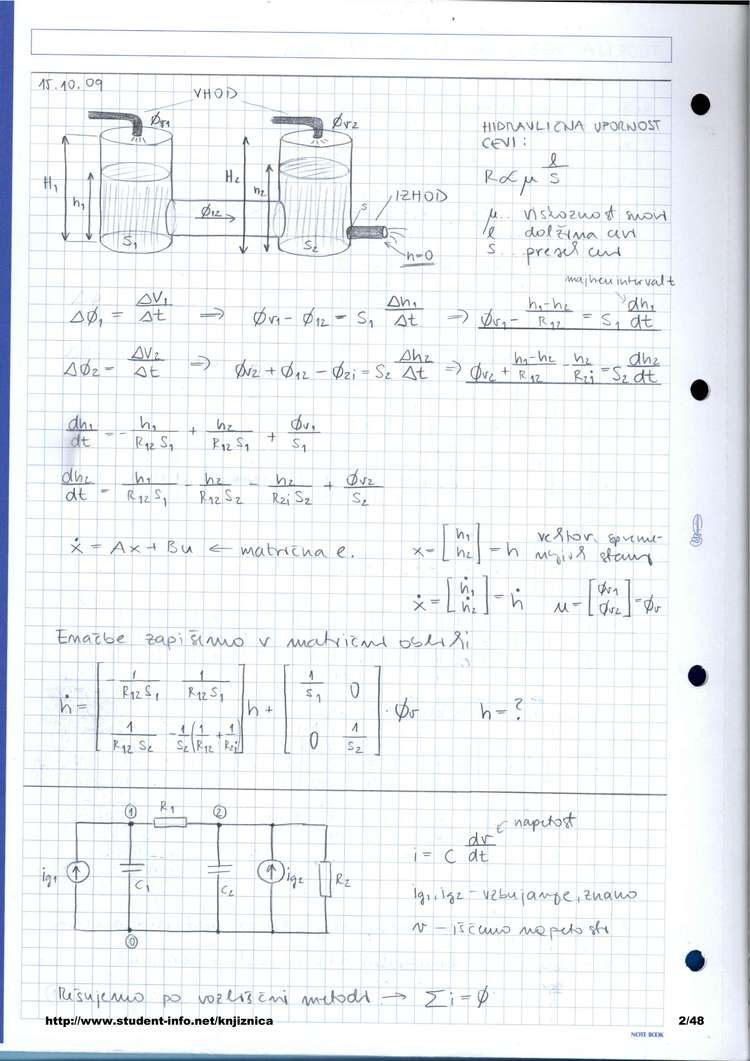 15.10.09
VHOD
Φv1
Φv2
H1
h1
H2
h2
Φ12
S1
S2
S
IZHOD
h=0
HIDRAVLIČNA UPORNOST
CEVI:
R ∝ μ l/S
μ... viskoznost snovi
l dolžina cevi
S... presek cevi
majhen interval t
ΔΦ1 = ΔV1/Δt ⇒ Φv1 - Φ12 = S1 Δh1/Δt ⇒ Φv1 - (h1-h2)/R12 = S1 dh1/dt
ΔΦ2 = ΔV2/Δt ⇒ Φv2 + Φ12 - Φ2i = S2 Δh2/Δt ⇒ Φv2 + (h1-h2)/R12 - h2/R2i = S2 dh2/dt
dh1/dt = - h1/(R12 S1) + h2/(R12 S1) + Φv1/S1
dh2/dt = h1/(R12 S1) - h2/(R12 S2) - h2/(R2i S2) + Φv2/S2
ẋ = Ax + Bu ← matrična e.
x = [h1 h2] = h vektor spreme-
nljivk stanj
ẋ = [ḣ1 ḣ2] = ḣ u = [Φv1 Φv2] = Φv
Enačbe zapišimo v matrični obliki
ḣ = [-1/(R12 S1) 1/(R12 S1); 1/(R12 S2) -1/S2 (1/R12 + 1/R2i)] h + [1/S1 0; 0 1/S2] · Φv h = ?
1
R1
2
ig1
C1
C2
ig2
R2
0
napetost
i = C dv/dt
ig1, ig2 - vzbujanje, znano
v - iščemo napetosti
Rešujemo po vozliščni metodi → Σi = Φ
http://www.student-info.net/knjiznica
2/48
NOTE BOOK